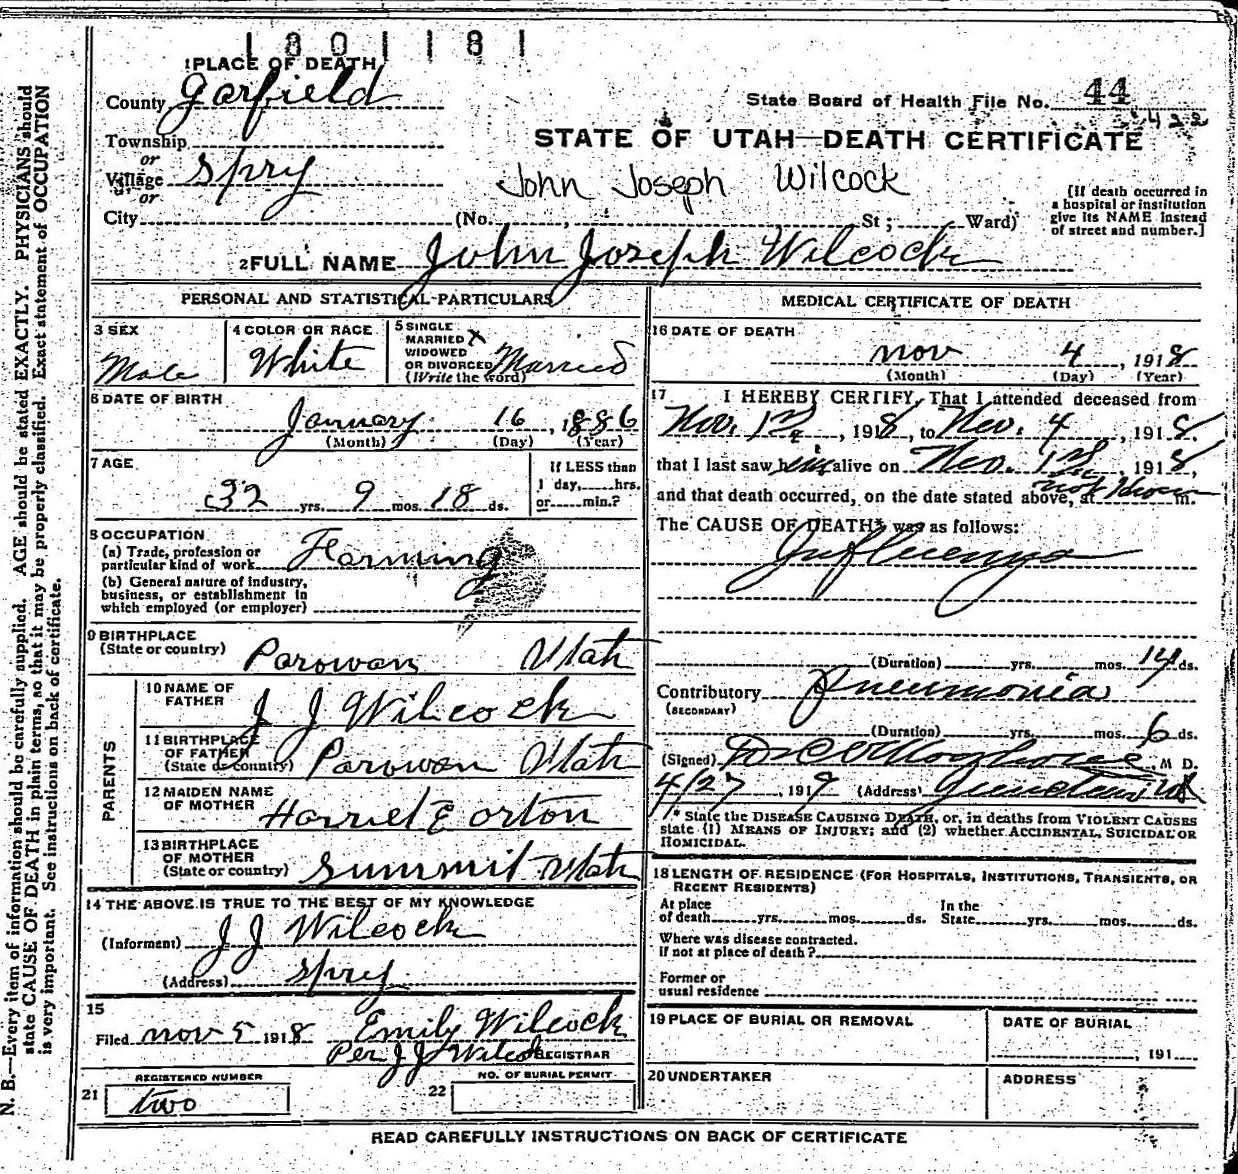 1801181
1 PLACE OF DEATH
County Garfield
State Board of Health File No. 44
422
Township
or
Village Spry
or
STATE OF UTAH—DEATH CERTIFICATE
John Joseph Wilcock
City (No. , St ; Ward)
[If death occurred in
a hospital or institution
give its NAME instead
of street and number.]
2 FULL NAME John Joseph Wilcock
PERSONAL AND STATISTICAL PARTICULARS
3 SEX
Male
4 COLOR OR RACE
White
5 SINGLE
MARRIED X
WIDOWED
OR DIVORCED
(Write the word)
Married
6 DATE OF BIRTH
January 16, 1886
(Month) (Day) (Year)
7 AGE
32 yrs. 9 mos. 18 ds.
If LESS than
1 day, hrs.
or min.?
8 OCCUPATION
(a) Trade, profession or
particular kind of work Farming
(b) General nature of industry,
business, or establishment in
which employed (or employer)
9 BIRTHPLACE
(State or country) Parowan Utah
PARENTS
10 NAME OF
FATHER J J Wilcock
11 BIRTHPLACE
OF FATHER
(State or country) Parowan Utah
12 MAIDEN NAME
OF MOTHER Harriet E Orton
13 BIRTHPLACE
OF MOTHER
(State or country) Summit Utah
14 THE ABOVE IS TRUE TO THE BEST OF MY KNOWLEDGE
(Informent) J J Wilcock
(Address) Spry
15
Filed Nov 5 1918 Emily Wilcock
Per J J Wilcock REGISTRAR
21 REGISTERED NUMBER
two
22 NO. OF BURIAL PERMIT
MEDICAL CERTIFICATE OF DEATH
16 DATE OF DEATH
Nov 4, 1918
(Month) (Day) (Year)
17 I HEREBY CERTIFY, That I attended deceased from
Nov. 1st, 1918, to Nov. 4, 1918.
that I last saw him alive on Nov. 1st, 1918,
and that death occurred, on the date stated above, at not known m.
The CAUSE OF DEATH* was as follows:
Influenza
(Duration) yrs. mos. 14 ds.
Contributory Pneumonia
(SECONDARY)
(Duration) yrs. mos. 6 ds.
(Signed) , M D.
4/27, 1919 (Address)
* State the DISEASE CAUSING DEATH, or, in deaths from VIOLENT CAUSES
state (1) MEANS OF INJURY; and (2) whether ACCIDENTAL, SUICIDAL OR
HOMICIDAL.
18 LENGTH OF RESIDENCE (FOR HOSPITALS, INSTITUTIONS, TRANSIENTS, OR
RECENT RESIDENTS)
At place
of death yrs. mos. ds.
In the
State yrs. mos. ds.
Where was disease contracted.
if not at place of death?
Former or
usual residence
19 PLACE OF BURIAL OR REMOVAL
DATE OF BURIAL
, 191
20 UNDERTAKER
ADDRESS
READ CAREFULLY INSTRUCTIONS ON BACK OF CERTIFICATE
N. B.—Every item of information should be carefully supplied. AGE should be stated EXACTLY. PHYSICIANS should
state CAUSE OF DEATH in plain terms, so that it may be properly classified. Exact statement of OCCUPATION
is very important. See instructions on back of certificate.